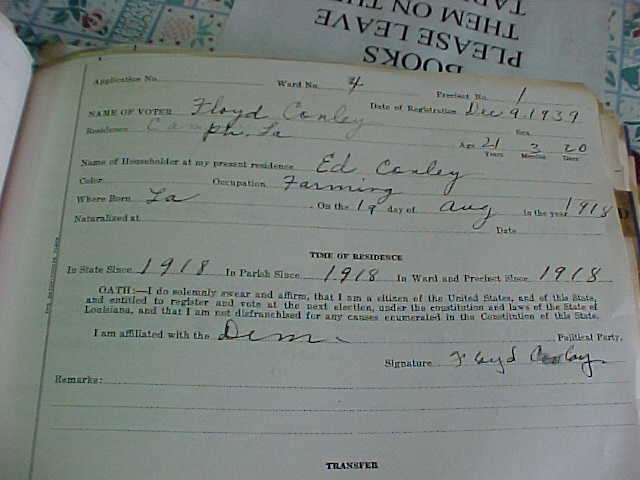 BOOKS
PLEASE LEAVE
THEM ON THE
Application No. Ward No. 4 Precinct No. 1
NAME OF VOTER Floyd Conley Date of Registration Dec 9 1939
Residence Campti, La Sex
Age 21 Years 3 Months 20 Days
Name of Householder at my present residence Ed. Conley
Color Occupation Farming
Where Born La On the 19 day of Aug in the year 1918
Naturalized at Date
TIME OF RESIDENCE
In State Since 1918 In Parish Since 1918 In Ward and Precinct Since 1918
OATH:—I do solemnly swear and affirm, that I am a citizen of the United States, and of this State,
and entitled to register and vote at the next election, under the constitution and laws of the State of
Louisiana, and that I am not disfranchised for any causes enumerated in the Constitution of this State.
I am affiliated with the Dem. Political Party.
Signature Floyd Conley.
Remarks:
TRANSFER